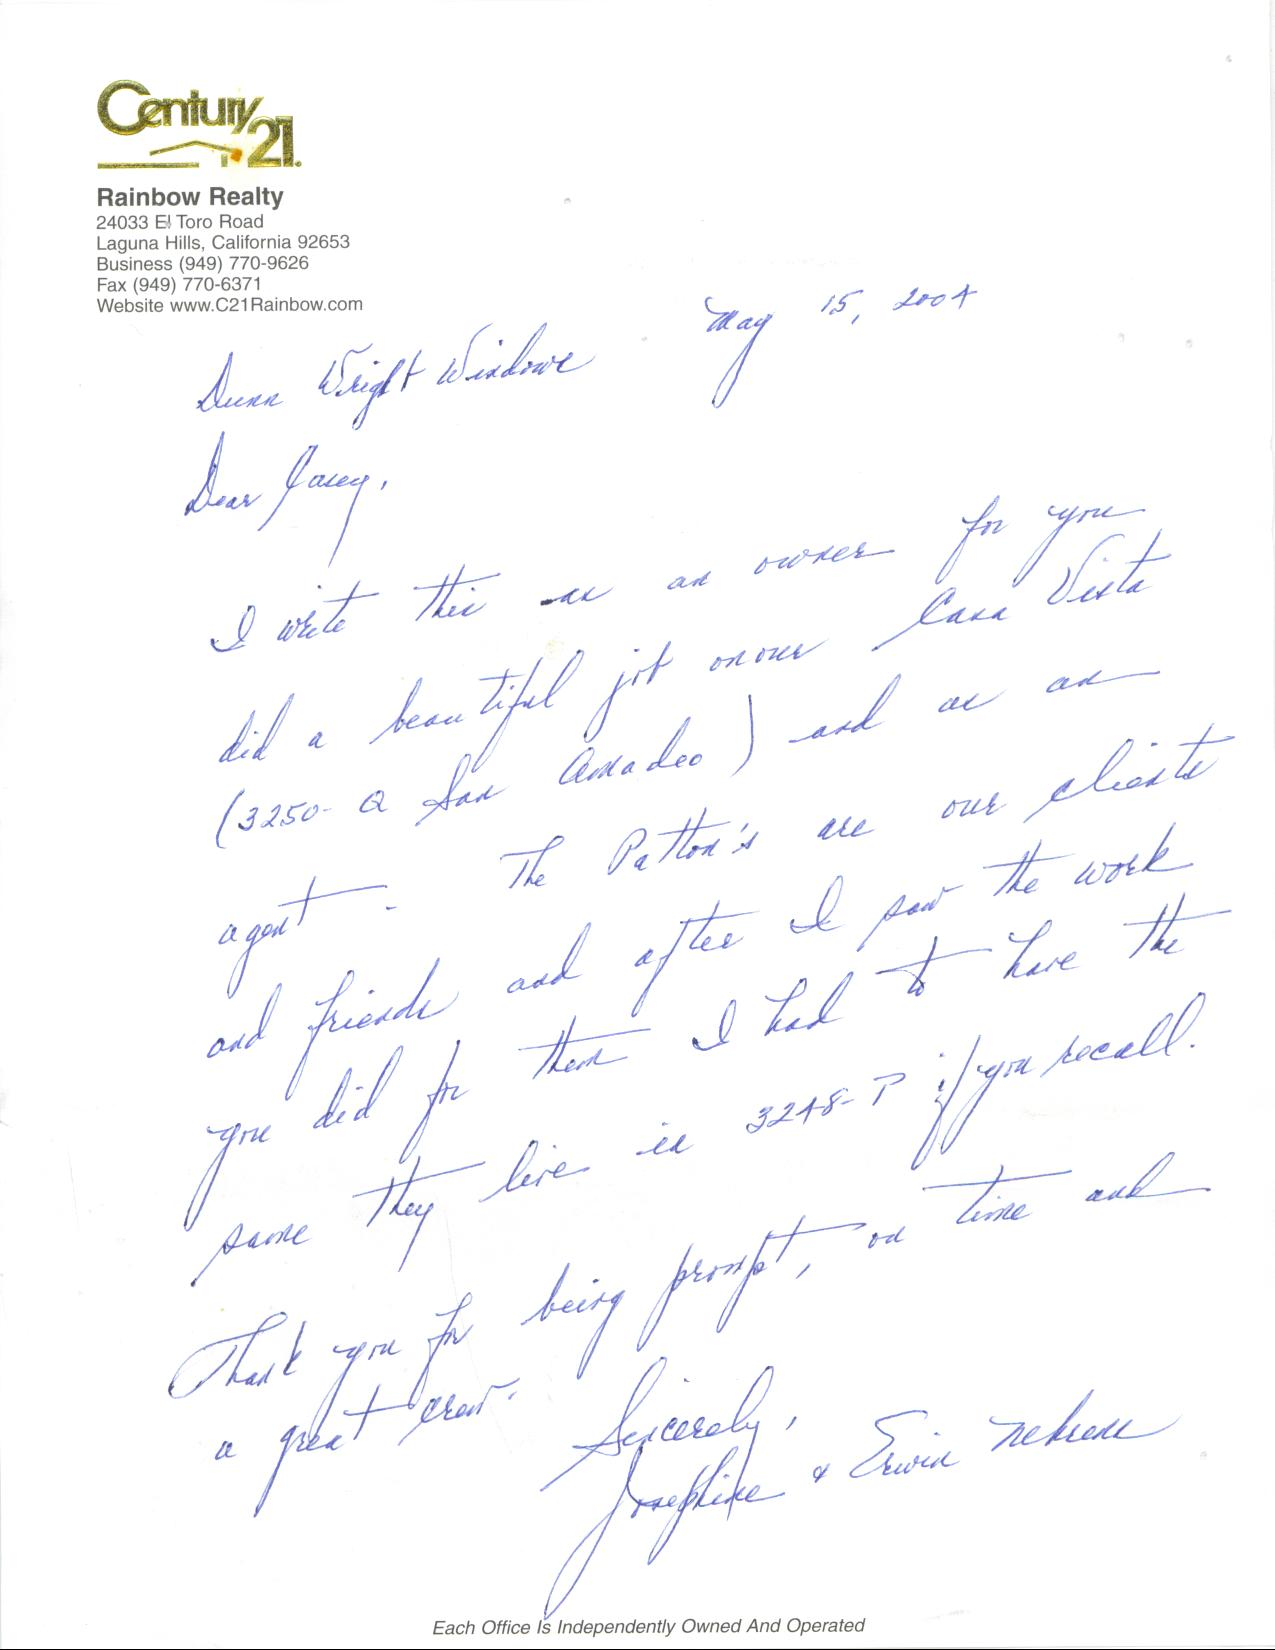 Century 21.
Rainbow Realty
24033 El Toro Road
Laguna Hills, California 92653
Business (949) 770-9626
Fax (949) 770-6371
Website www.C21Rainbow.com
May 15, 2004
Dunn Wright Windows
Dear Casey,
I write this as an owner for you
did a beautiful job on our Casa Vista
(3250-Q San Amadeo) and as an
agent. The Patton's are our clients
and friends and after I saw the work
you did for them I had to have the
same they live in 3248-P if you recall.
Thank you for being prompt, on time and
a great crew.
Sincerely,
Josephine & Erwin
Each Office Is Independently Owned And Operated